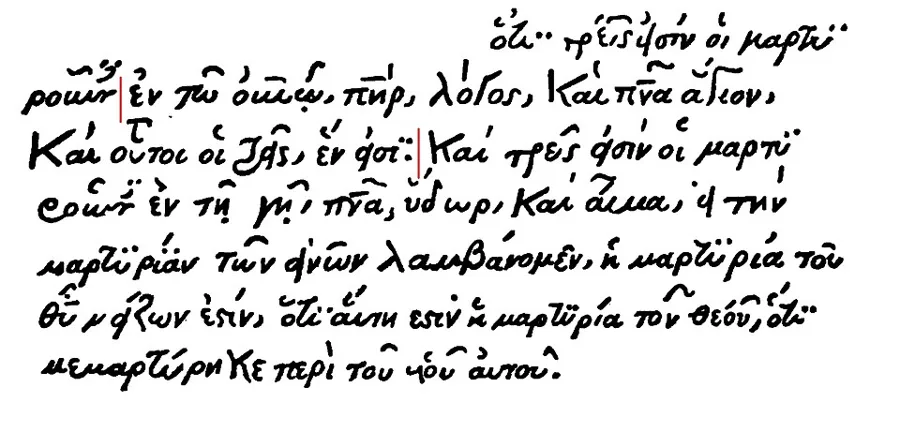 ὅτι τρεῖς εἰσίν οἱ μαρτυ
ροῦντ ἐν τῶ οὐνῶ, πηρ, λόγος, καὶ πνα ἅγιον,
καὶ οὗτοι οἱ τρεῖς, ἕν εἰσι. καὶ τρεῖς εἰσίν οἱ μαρτυ
ροῦντ ἐν τῇ γῇ, πνα, ὕδωρ, καὶ αἷμα, εἰ τὴν
μαρτυρίαν τῶν ἀνων λαμβάνομεν, ἡ μαρτυρία τοῦ
θυ μείζων ἐστίν, ὅτι αὕτη ἐστὶν ἡ μαρτυρία τοῦ θεοῦ, ὅτι
μεμαρτύρηκε περὶ τοῦ υἱοῦ αὐτοῦ.